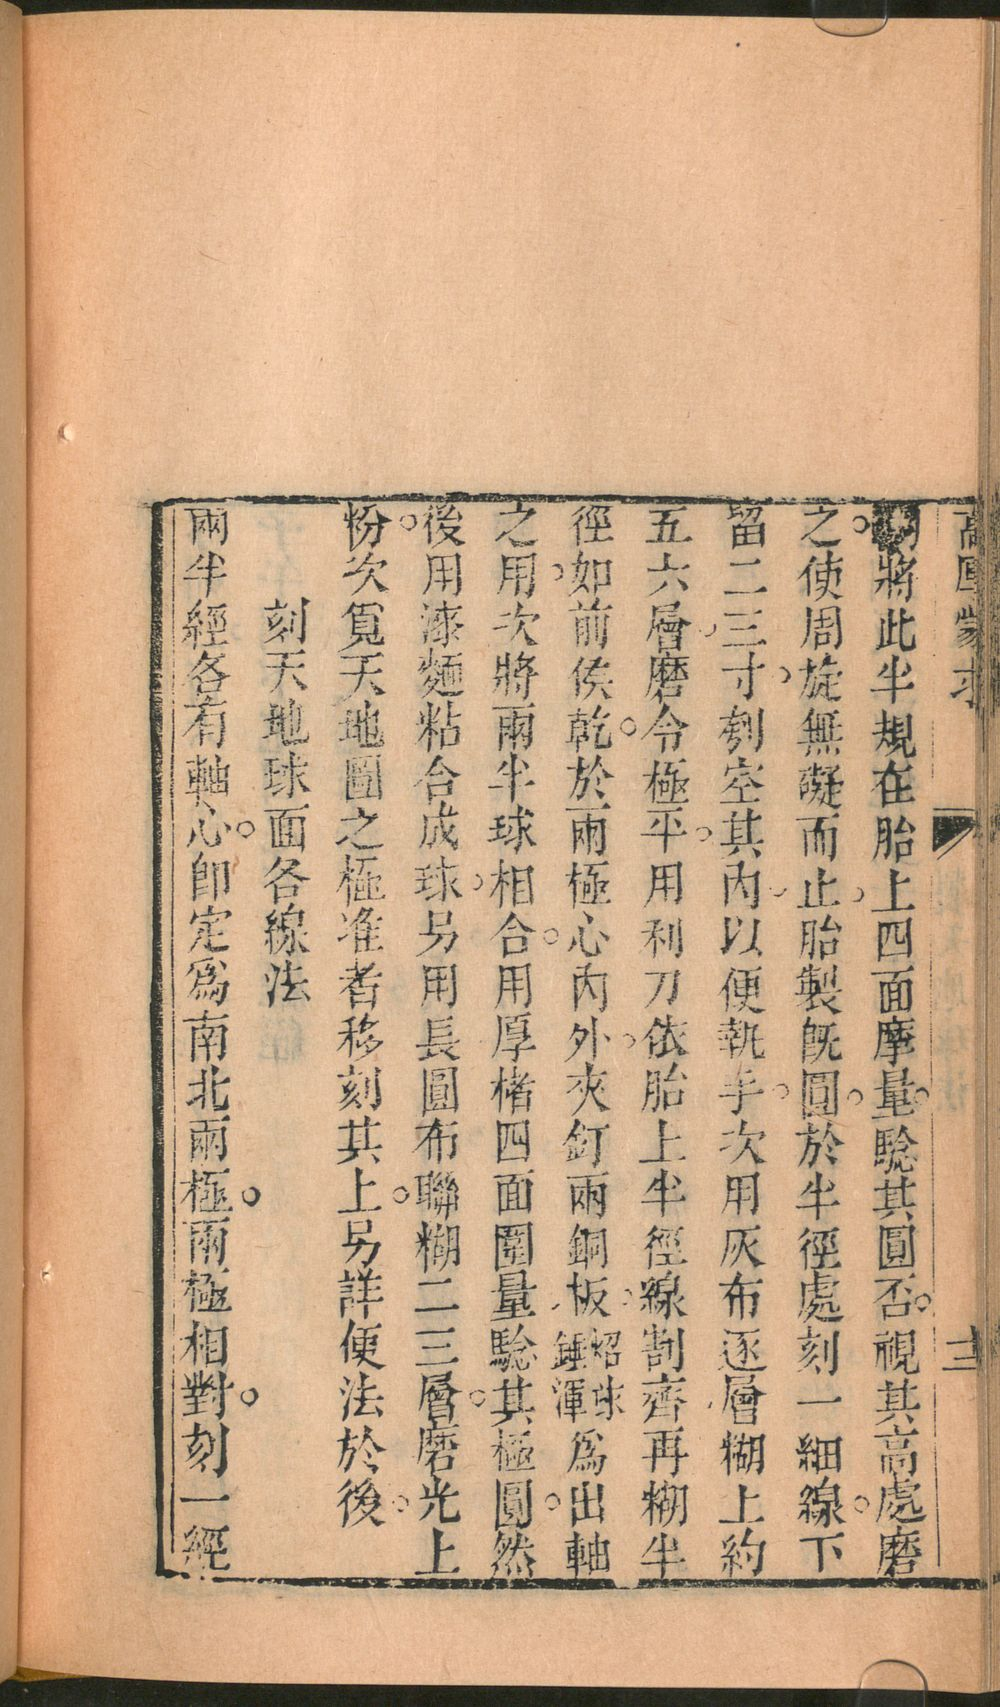 高厚蒙求
十二
將此半規在胎上四面摩量驗其圓否視其高處磨
之使周旋無礙而止胎製既圓於半徑處刻一細線下
留二三寸刳空其內以便執手次用灰布逐層糊上約
五六層磨令極平用利刀依胎上半徑線割齊再糊半
徑如前俟乾於兩極心內外夾釘兩銅板球渾爲出軸
之用次將兩半球相合用厚楮四面圍量驗其極圓然
後用漆麵粘合成球另用長圓布聯糊二三層磨光上
粉次覓天地圖之極准者移刻其上另詳便法於後
刻天地球面各線法
兩半經各有軸心卽定爲南北兩極兩極相對刻一經